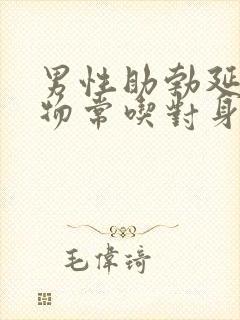 男性助勃延
物常喫對身
毛偉琦